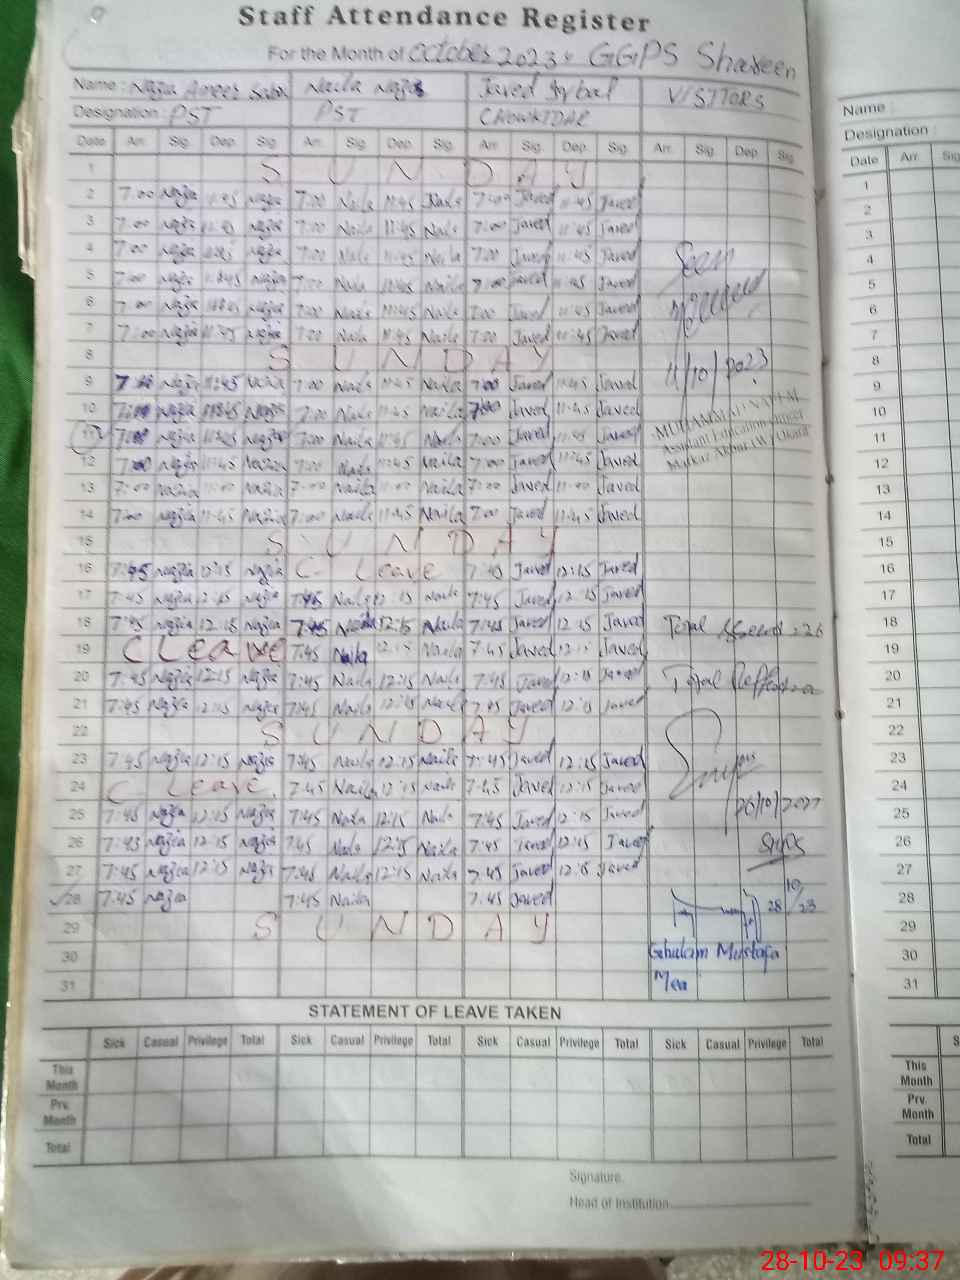 Staff Attendance Register
For the Month of October 2023 GGPS Shaheen
Name : Nazia Ameer Naila Nazia Javed Iqbal VISITORS
Designation : PST PST CHOWKIDAR
Date Arr. Sig. Dep. Sig. Arr. Sig. Dep. Sig. Arr. Sig. Dep. Sig. Arr. Sig. Dep. Sig.
1 SUNDAY
2 7:00 Nazia 11:45 Nazia 7:00 Naila 11:45 Naila 7:00 Javed 11:45 Javed
3 7:00 Nazia 11:45 Nazia 7:00 Naila 11:45 Naila 7:00 Javed 11:45 Javed
4 7:00 Nazia 11:45 Nazia 7:00 Naila 11:45 Naila 7:00 Javed 11:45 Javed Seen
5 7:00 Nazia 11:45 Nazia 7:00 Naila 11:45 Naila 7:00 Javed 11:45 Javed
6 7:00 Nazia 11:45 Nazia 7:00 Naila 11:45 Naila 7:00 Javed 11:45 Javed
7 7:00 Nazia 11:45 Nazia 7:00 Naila 11:45 Naila 7:00 Javed 11:45 Javed
8 SUNDAY 11/10/2023
9 7:00 Nazia 11:45 Nazia 7:00 Naila 11:45 Naila 7:00 Javed 11:45 Javed
10 7:00 Nazia 11:45 Nazia 7:00 Naila 11:45 Naila 7:00 Javed 11:45 Javed
MUHAMMAD
11 7:00 Nazia 11:45 Nazia 7:00 Naila 11:45 Naila 7:00 Javed 11:45 Javed
Assistant Education Officer
12 7:00 Nazia 11:45 Nazia 7:00 Naila 11:45 Naila 7:00 Javed 11:45 Javed
Markaz Akbar (W) Okara
13 7:00 Nazia 11:00 Nazia 7:00 Naila 11:00 Naila 7:00 Javed 11:00 Javed
14 7:00 Nazia 11:45 Nazia 7:00 Naila 11:45 Naila 7:00 Javed 11:45 Javed
15 SUNDAY
16 7:45 Nazia 12:15 Nazia C- Leave 7:45 Javed 12:15 Javed
17 7:45 Nazia 12:15 Nazia 7:45 Naila 12:15 Naila 7:45 Javed 12:15 Javed
18 7:45 Nazia 12:15 Nazia 7:45 Naila 12:15 Naila 7:45 Javed 12:15 Javed Total
19 C Leave 7:45 Naila 12:15 Naila 7:45 Javed 12:15 Javed
20 7:45 Nazia 12:15 Nazia 7:45 Naila 12:15 Naila 7:45 Javed 12:15 Javed Total
21 7:45 Nazia 12:15 Nazia 7:45 Naila 12:15 Naila 7:45 Javed 12:15 Javed
22 SUNDAY
23 7:45 Nazia 12:15 Nazia 7:45 Naila 12:15 Naila 7:45 Javed 12:15 Javed
24 C- Leave. 7:45 Naila 12:15 Naila 7:45 Javed 12:15 Javed
25 7:45 Nazia 12:15 Nazia 7:45 Naila 12:15 Naila 7:45 Javed 12:15 Javed
26 7:45 Nazia 12:15 Nazia 7:45 Naila 12:15 Naila 7:45 Javed 12:15 Javed
27 7:45 Nazia 12:15 Nazia 7:45 Naila 12:15 Naila 7:45 Javed 12:15 Javed
28 7:45 Nazia 7:45 Naila 7:45 Javed 28/10/23
29 SUNDAY
30 Ghulam Mustafa
31 Mea
STATEMENT OF LEAVE TAKEN
Sick Casual Privilege Total Sick Casual Privilege Total Sick Casual Privilege Total Sick Casual Privilege Total
This Month
Prv. Month
Total
Signature.
Head of Institution
Name :
Designation :
Date Arr. Sig
1
2
3
4
5
6
7
8
9
10
11
12
13
14
15
16
17
18
19
20
21
22
23
24
25
26
27
28
29
30
31
This Month
Prv. Month
Total
28-10-23 09:37